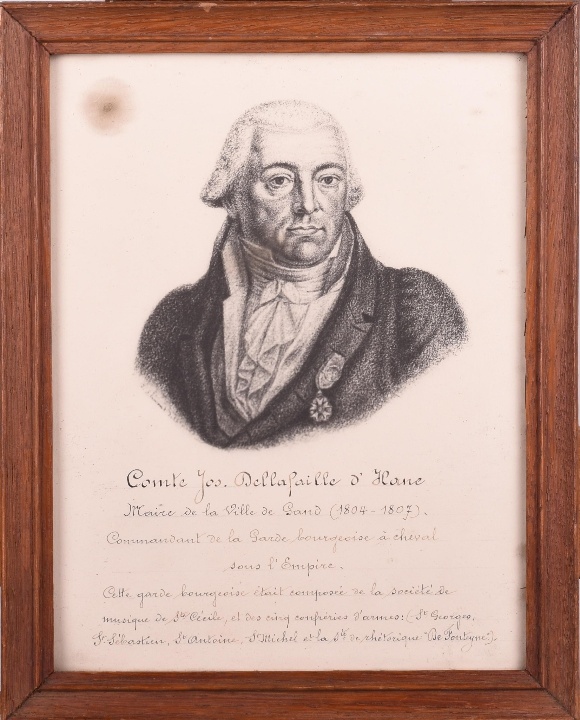 Comte Jos. Dellafaille d'Hane
Maire de la Ville de Gand (1804-1807).
Commandant de la Garde bourgeoise à cheval
sous l'Empire.
Cette garde bourgeoise était composée de la société de
musique de Ste Cécile, et des cinq confréries d'armes: (St Georges,
St Sébastien, St Antoine, St Michel et la Sté de rhétorique "De Fontyne").